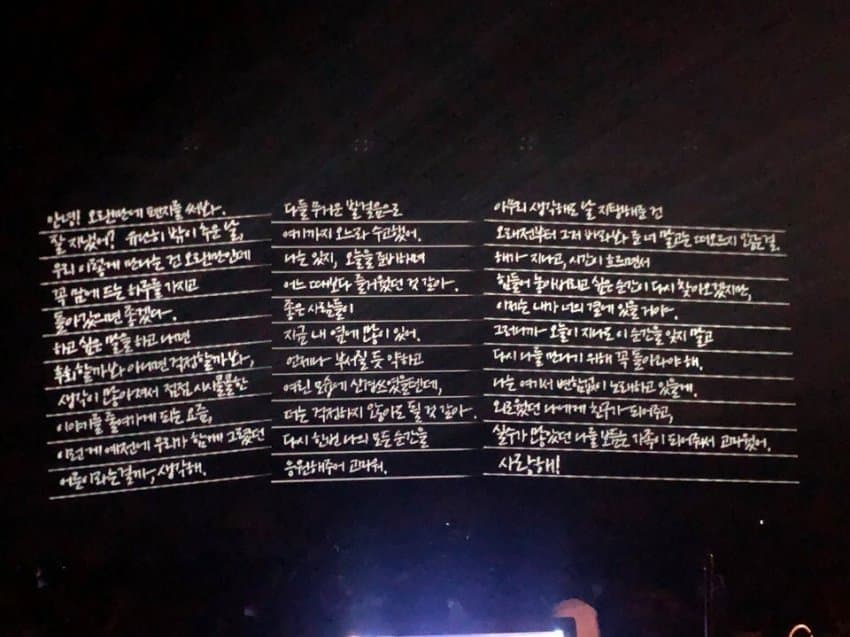 안녕! 오랜만에 편지를 써봐.
잘 지냈어? 유난히 밖이 추운 날,
우리 이렇게 만나는 건 오랜만인데
꼭 맘에 드는 하루를 가지고
돌아갔으면 좋겠다.
하고 싶은 말을 하고 나면
후회할까봐 아니면 걱정할까봐,
생각이 많아져서 점점 시시콜콜한
이야기를 줄여가게 되는 요즘,
이런 게 예전에 우리가 함께 그렸던
어른이라는걸까, 생각해.
다들 무거운 발걸음으로
여기까지 오느라 수고했어.
나는 있지, 오늘을 준비하며
어느 때보다 즐거웠던 것 같아.
좋은 사람들이
지금 내 옆에 많이 있어.
언제나 부서질 듯 약하고
여린 모습에 신경쓰였을텐데,
더는 걱정하지 않아도 될 것 같아.
다시 한번 나의 모든 순간을
응원해주어 고마워.
아무리 생각해도 날 지탱해준 건
오래전부터 그저 바라봐 준 너 말고는 떠오르지 않곤걸.
해가 지나고, 시간이 흐르면서
힘들어 놓아버리고 싶은 순간이 다시 찾아오겠지만,
이제는 내가 너의 곁에 있을거야.
그러니까 오늘이 지나도 이 순간을 잊지 말고
다시 나를 만나기 위해 꼭 돌아와야 해.
나는 여기서 변함없이 노래하고 있을게.
외로웠던 나에게 친구가 되어주고,
실수가 많았던 나를 보듬는 가족이 되어줘서 고마웠어.
사랑해!